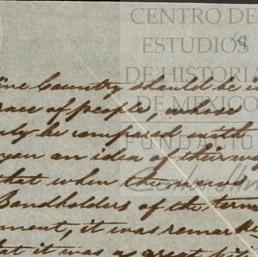 CENTRO DE
ESTUDIOS
DE HISTORIA
DE MEXICO
FUNDACIÓ
ine Country should be i
ence of people, whose
nly be compared with
an an idea of their
that when
Bandholders of the
ment, it was remark
that it was a great